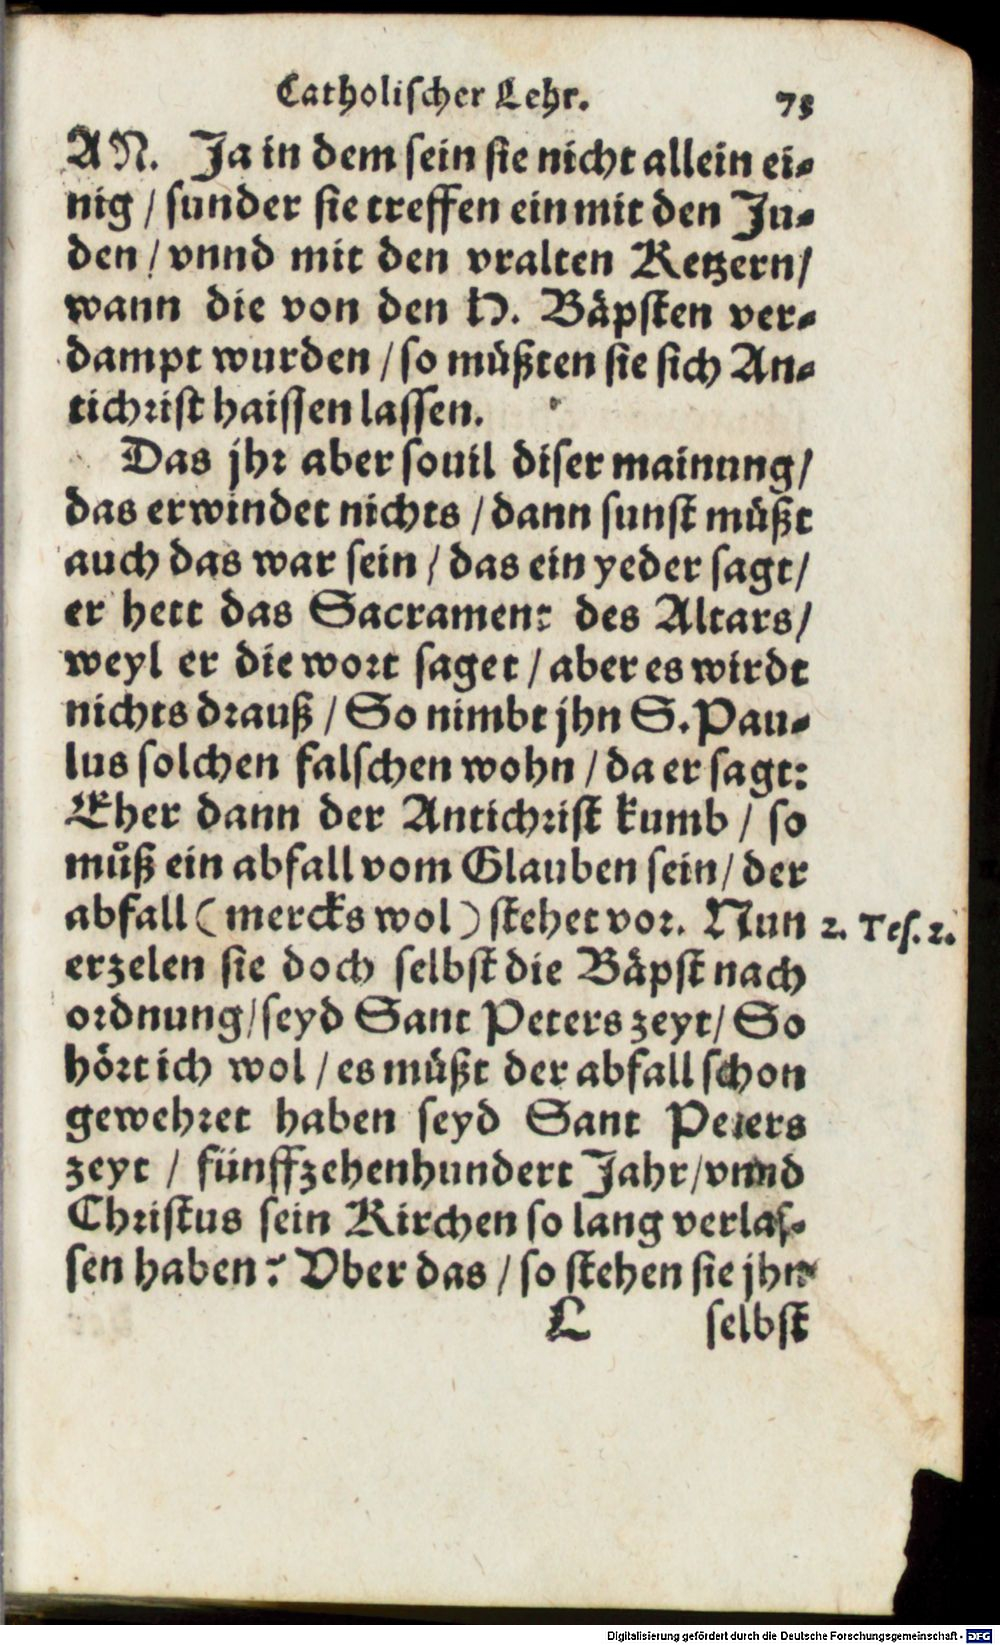 Catholischer Lehr. 73
AN. Ja in dem sein sie nicht allein ei-
nig / sunder sie treffen ein mit den Ju-
den / vnnd mit den vralten Ketzern /
wann die von den H. Bäpsten ver-
dampt wurden / so müßten sie sich An-
tichrist haissen lassen.
Das jhr aber souil diser mainung /
das erwindet nichts / dann sunst müßt
auch das war sein / das ein yeder sagt /
er hett das Sacrament des Altars /
weyl er die wort saget / aber es wirdt
nichts drauß / So nimbt jhn S. Pau-
lus solchen falschen wohn / da er sagt:
Eher dann der Antichrist kumb / so
muͦß ein abfall vom Glauben sein / der
abfall (mercks wol) stehet vor. Nun 2. Tes. 2.
erzelen sie doch selbst die Bäpst nach
ordnung / seyd Sant Peters zeyt / So
hört ich wol / es müßt der abfall schon
gewehret haben seyd Sant Peters
zeyt / fünffzehenhundert Jahr / vnnd
Christus sein Kirchen so lang verlas-
sen haben? Vber das / so stehen sie jhn
L selbst
Digitalisierung gefördert durch die Deutsche Forschungsgemeinschaft - DFG